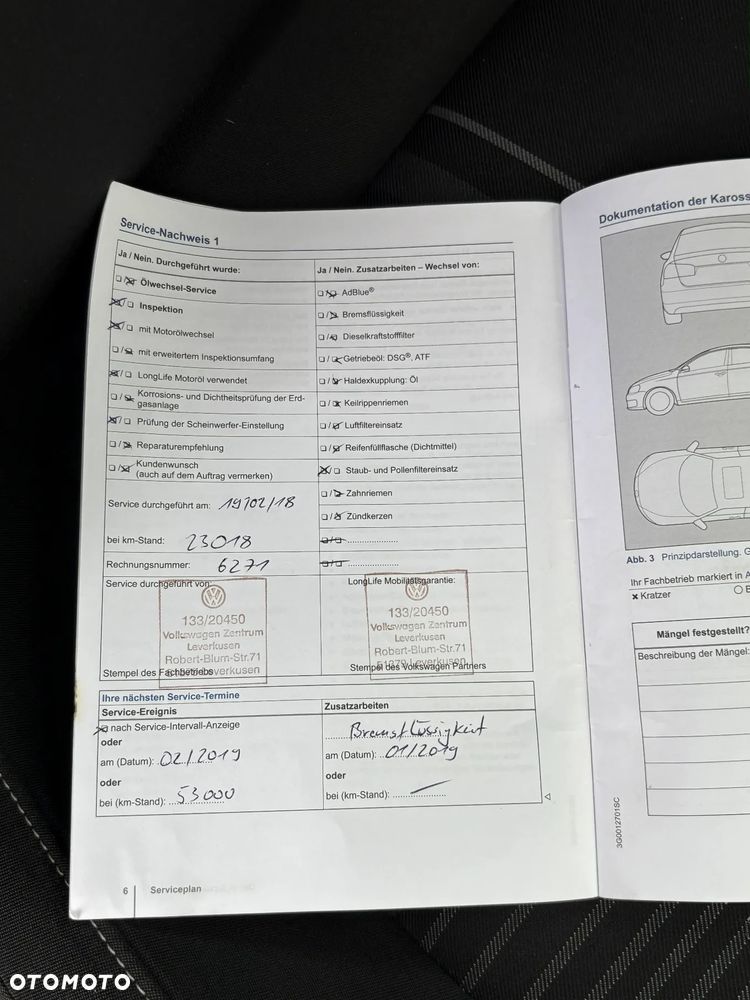 Service-Nachweis 1
Ja / Nein. Durchgeführt wurde:
Ölwechsel-Service
Inspektion
mit Motorölwechsel
mit erweitertem Inspektionsumfang
LongLife Motoröl verwendet
Korrosions- und Dichtheitsprüfung der Erd-
gasanlage
Prüfung der Scheinwerfer-Einstellung
Reparaturempfehlung
Kundenwunsch
(auch auf dem Auftrag vermerken)
Service durchgeführt am: 19/02/18
bei km-Stand: 23018
Rechnungsnummer: 6271
Service durchgeführt von:
133/20450
Volkswagen Zentrum
Leverkusen
Robert-Blum-Str.71
51379 Leverkusen
Stempel des Fachbetriebs
Ja / Nein. Zusatzarbeiten – Wechsel von:
AdBlue®
Bremsflüssigkeit
Dieselkraftstofffilter
Getriebeöl: DSG®, ATF
Haldexkupplung: Öl
Keilrippenriemen
Luftfiltereinsatz
Reifenfüllflasche (Dichtmittel)
Staub- und Pollenfiltereinsatz
Zahnriemen
Zündkerzen
LongLife Mobilitätsgarantie:
133/20450
Volkswagen Zentrum
Leverkusen
Robert-Blum-Str.71
51379 Leverkusen
Stempel des Volkswagen Partners
Ihre nächsten Service-Termine
Service-Ereignis
nach Service-Intervall-Anzeige
oder
am (Datum): 02/2019
oder
bei (km-Stand): 53000
Zusatzarbeiten
Bremsflüssigkeit
am (Datum): 01/2019
oder
bei (km-Stand):
6 Serviceplan
Dokumentation der Kaross
Abb. 3 Prinzipdarstellung. G
Ihr Fachbetrieb markiert in A
Kratzer
Mängel festgestellt?
Beschreibung der Mängel:
3G0012701SC
OTOMOTO